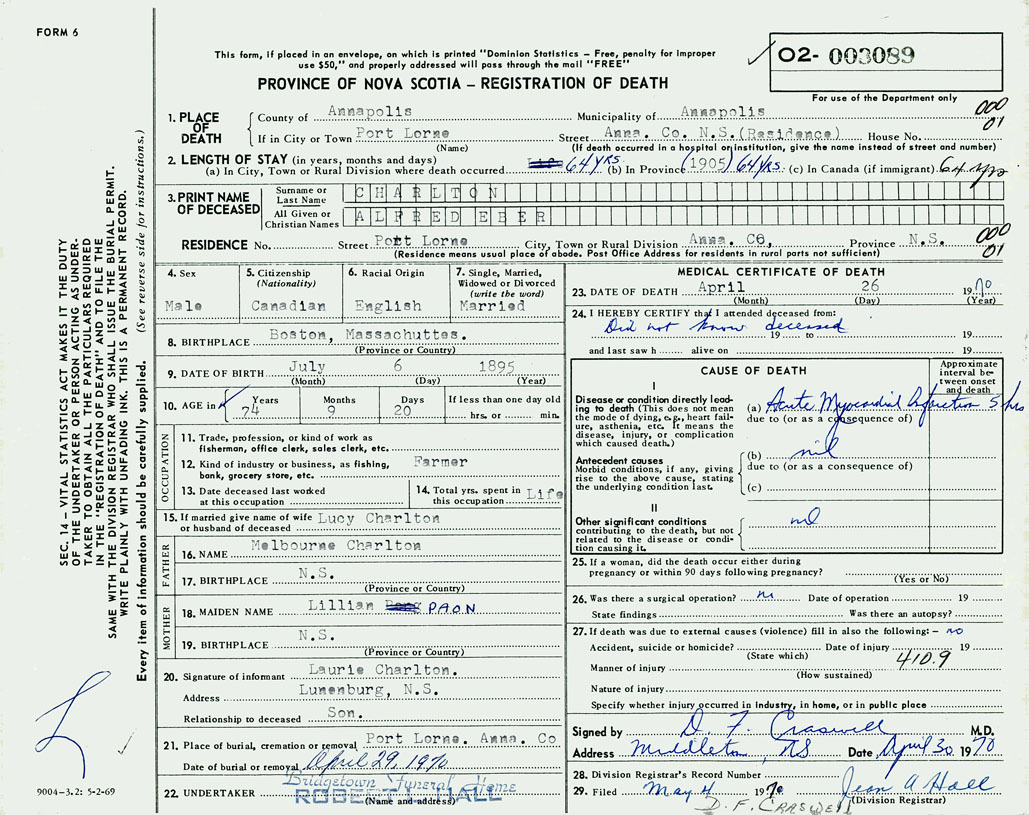 FORM 6
This form, if placed in an envelope, on which is printed "Dominion Statistics – Free, penalty for improper
use $50," and properly addressed will pass through the mail "FREE"
PROVINCE OF NOVA SCOTIA – REGISTRATION OF DEATH
02- 003089
For use of the Department only
000
01
1. PLACE OF DEATH
County of Annapolis Municipality of Annapolis
If in City or Town Port Lorne Street Anna. Co. N.S.(Residence) House No.
(Name) (If death occurred in a hospital or institution, give the name instead of street and number)
2. LENGTH OF STAY (in years, months and days)
(a) In City, Town or Rural Division where death occurred 64 YRS (b) In Province (1905) 64 yrs. (c) In Canada (if immigrant) 64 yrs
3. PRINT NAME OF DECEASED
Surname or Last Name CHARLTON
All Given or Christian Names ALFRED EBER
RESIDENCE No. Street Port Lorne City, Town or Rural Division Anna. Co, Province N.S.
(Residence means usual place of abode. Post Office Address for residents in rural parts not sufficient)
000
01
4. Sex
Male
5. Citizenship
(Nationality)
Canadian
6. Racial Origin
English
7. Single, Married,
Widowed or Divorced
(write the word)
Married
8. BIRTHPLACE Boston, Massachuttes.
(Province or Country)
9. DATE OF BIRTH July 6 1895
(Month) (Day) (Year)
10. AGE in Years 74 Months 9 Days 20 If less than one day old
hrs. or min.
OCCUPATION
11. Trade, profession, or kind of work as
fisherman, office clerk, sales clerk, etc.
12. Kind of industry or business, as fishing,
bank, grocery store, etc. Farmer
13. Date deceased last worked
at this occupation
14. Total yrs. spent in
this occupation Life
15. If married give name of wife
or husband of deceased Lucy Charlton
FATHER
16. NAME Melbourne Charlton
17. BIRTHPLACE N.S.
(Province or Country)
MOTHER
18. MAIDEN NAME Lillian PAON
19. BIRTHPLACE N.S.
(Province or Country)
20. Signature of informant Laurie Charlton.
Address Lunenburg, N.S.
Relationship to deceased Son.
21. Place of burial, cremation or removal Port Lorne. Anna. Co
Date of burial or removal April 29, 1970
22. UNDERTAKER Bridgetown Funeral Home
ROBERT L. HALL
(Name and address)
MEDICAL CERTIFICATE OF DEATH
23. DATE OF DEATH April 26 1970
(Month) (Day) (Year)
24. I HEREBY CERTIFY that I attended deceased from:
Did not know deceased
19 to 19
and last saw h alive on 19
CAUSE OF DEATH
Approximate
interval be-
tween onset
and death
I
Disease or condition directly lead-
ing to death (This does not mean
the mode of dying, e.g., heart fail-
ure, asthenia, etc. It means the
disease, injury, or complication
which caused death.)
(a) Acute Myocardial Infarction 5 hrs
due to (or as a consequence of)
Antecedent causes
Morbid conditions, if any, giving
rise to the above cause, stating
the underlying condition last.
(b) nil
due to (or as a consequence of)
(c)
II
Other significant conditions
contributing to the death, but not
related to the disease or condi-
tion causing it.
nil
25. If a woman, did the death occur either during
pregnancy or within 90 days following pregnancy?
(Yes or No)
26. Was there a surgical operation? no Date of operation 19
State findings Was there an autopsy?
27. If death was due to external causes (violence) fill in also the following: – no
Accident, suicide or homicide? Date of injury 19
(State which)
410.9
Manner of injury
(How sustained)
Nature of injury
Specify whether injury occurred in industry, in home, or in public place
Signed by D. F. Craswell M.D.
Address Middleton, NS Date April 30 1970
28. Division Registrar's Record Number
29. Filed May 4 1970 Jean A Hall
(Division Registrar)
D. F. CRASWELL
SEC. 14 – VITAL STATISTICS ACT MAKES IT THE DUTY
OF THE UNDERTAKER OR PERSON ACTING AS UNDER-
TAKER TO OBTAIN ALL THE PARTICULARS REQUIRED
IN THE "REGISTRATION OF DEATH" AND TO FILE THE
SAME WITH THE DIVISION REGISTRAR WHO SHALL ISSUE THE BURIAL PERMIT.
WRITE PLAINLY WITH UNFADING INK. THIS IS A PERMANENT RECORD.
Every item of information should be carefully supplied. (See reverse side for instructions.)
9004–3.2: 5-2-69